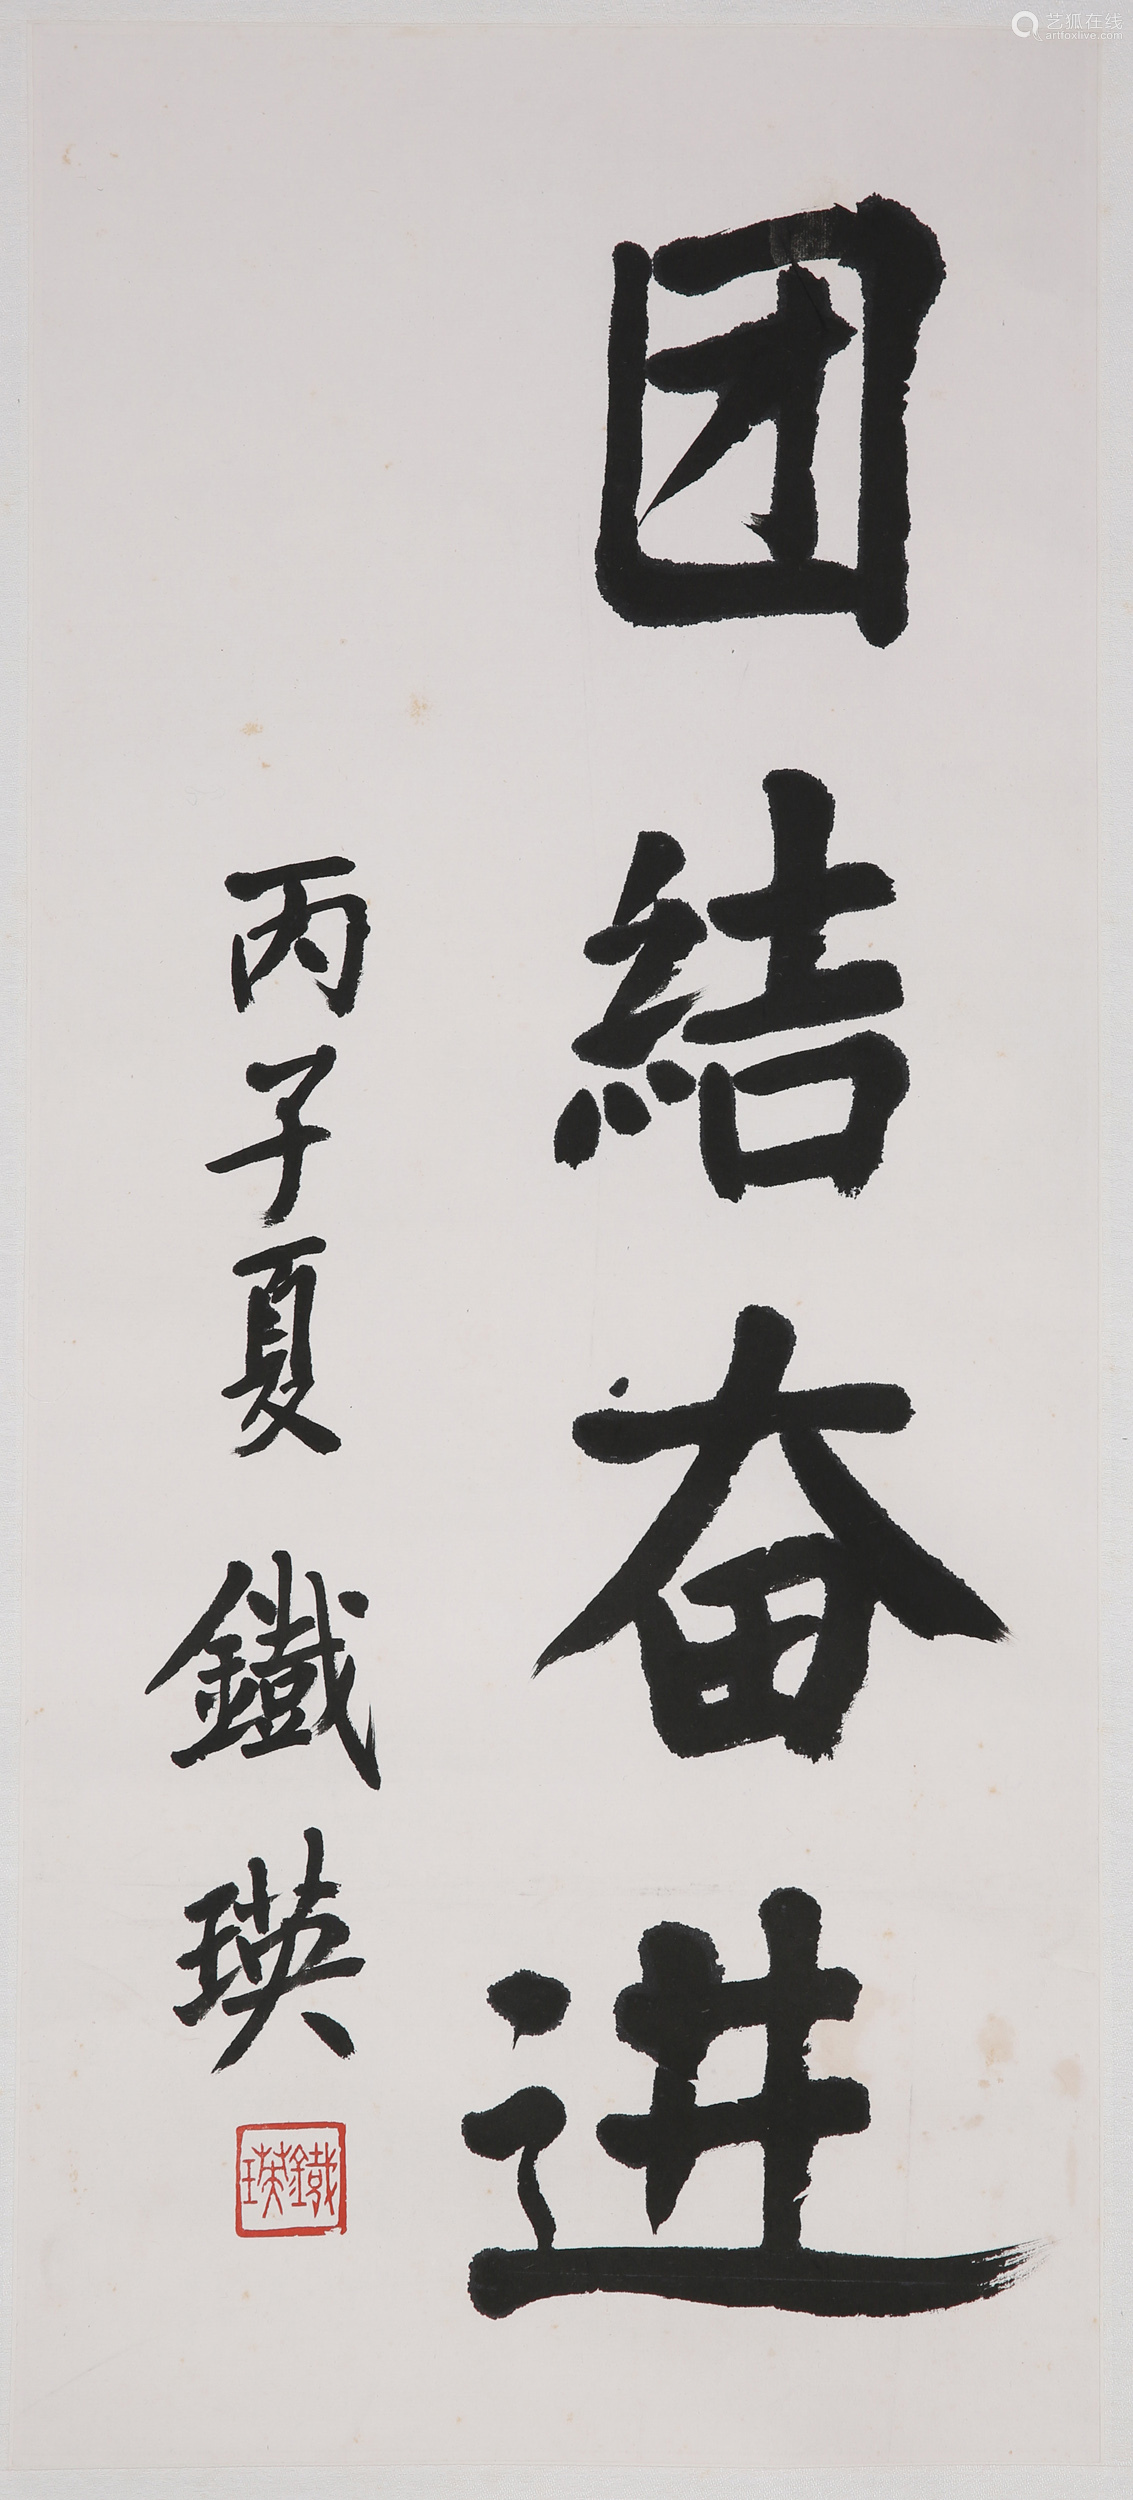 团結奋进
丙子夏 鐵瑛
鐵瑛
艺狐在线
artfoxlive.com